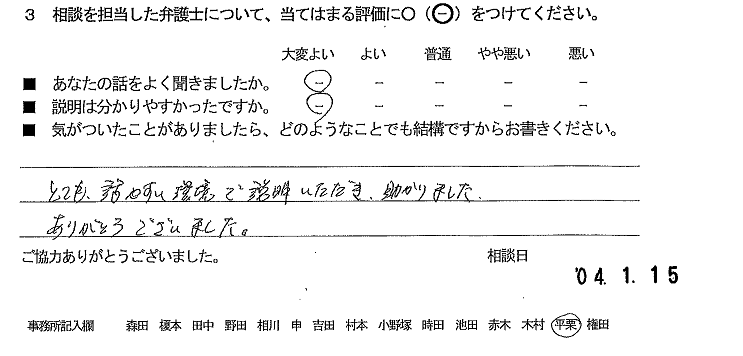 3 相談を担当した弁護士について、当てはまる評価に○(㊀)をつけてください。
大変よい よい 普通 やや悪い 悪い
■ あなたの話をよく聞きましたか。 － － － － －
■ 説明は分かりやすかったですか。 － － － － －
■ 気がついたことがありましたら、どのようなことでも結構ですからお書きください。
とても、話やすい環境で説明いただき、助かりました。
ありがとうございました。
ご協力ありがとうございました。 相談日
'04. 1. 15
事務所記入欄 森田 榎本 田中 野田 相川 申 吉田 村本 小野塚 時田 池田 赤木 木村 平栗 権田